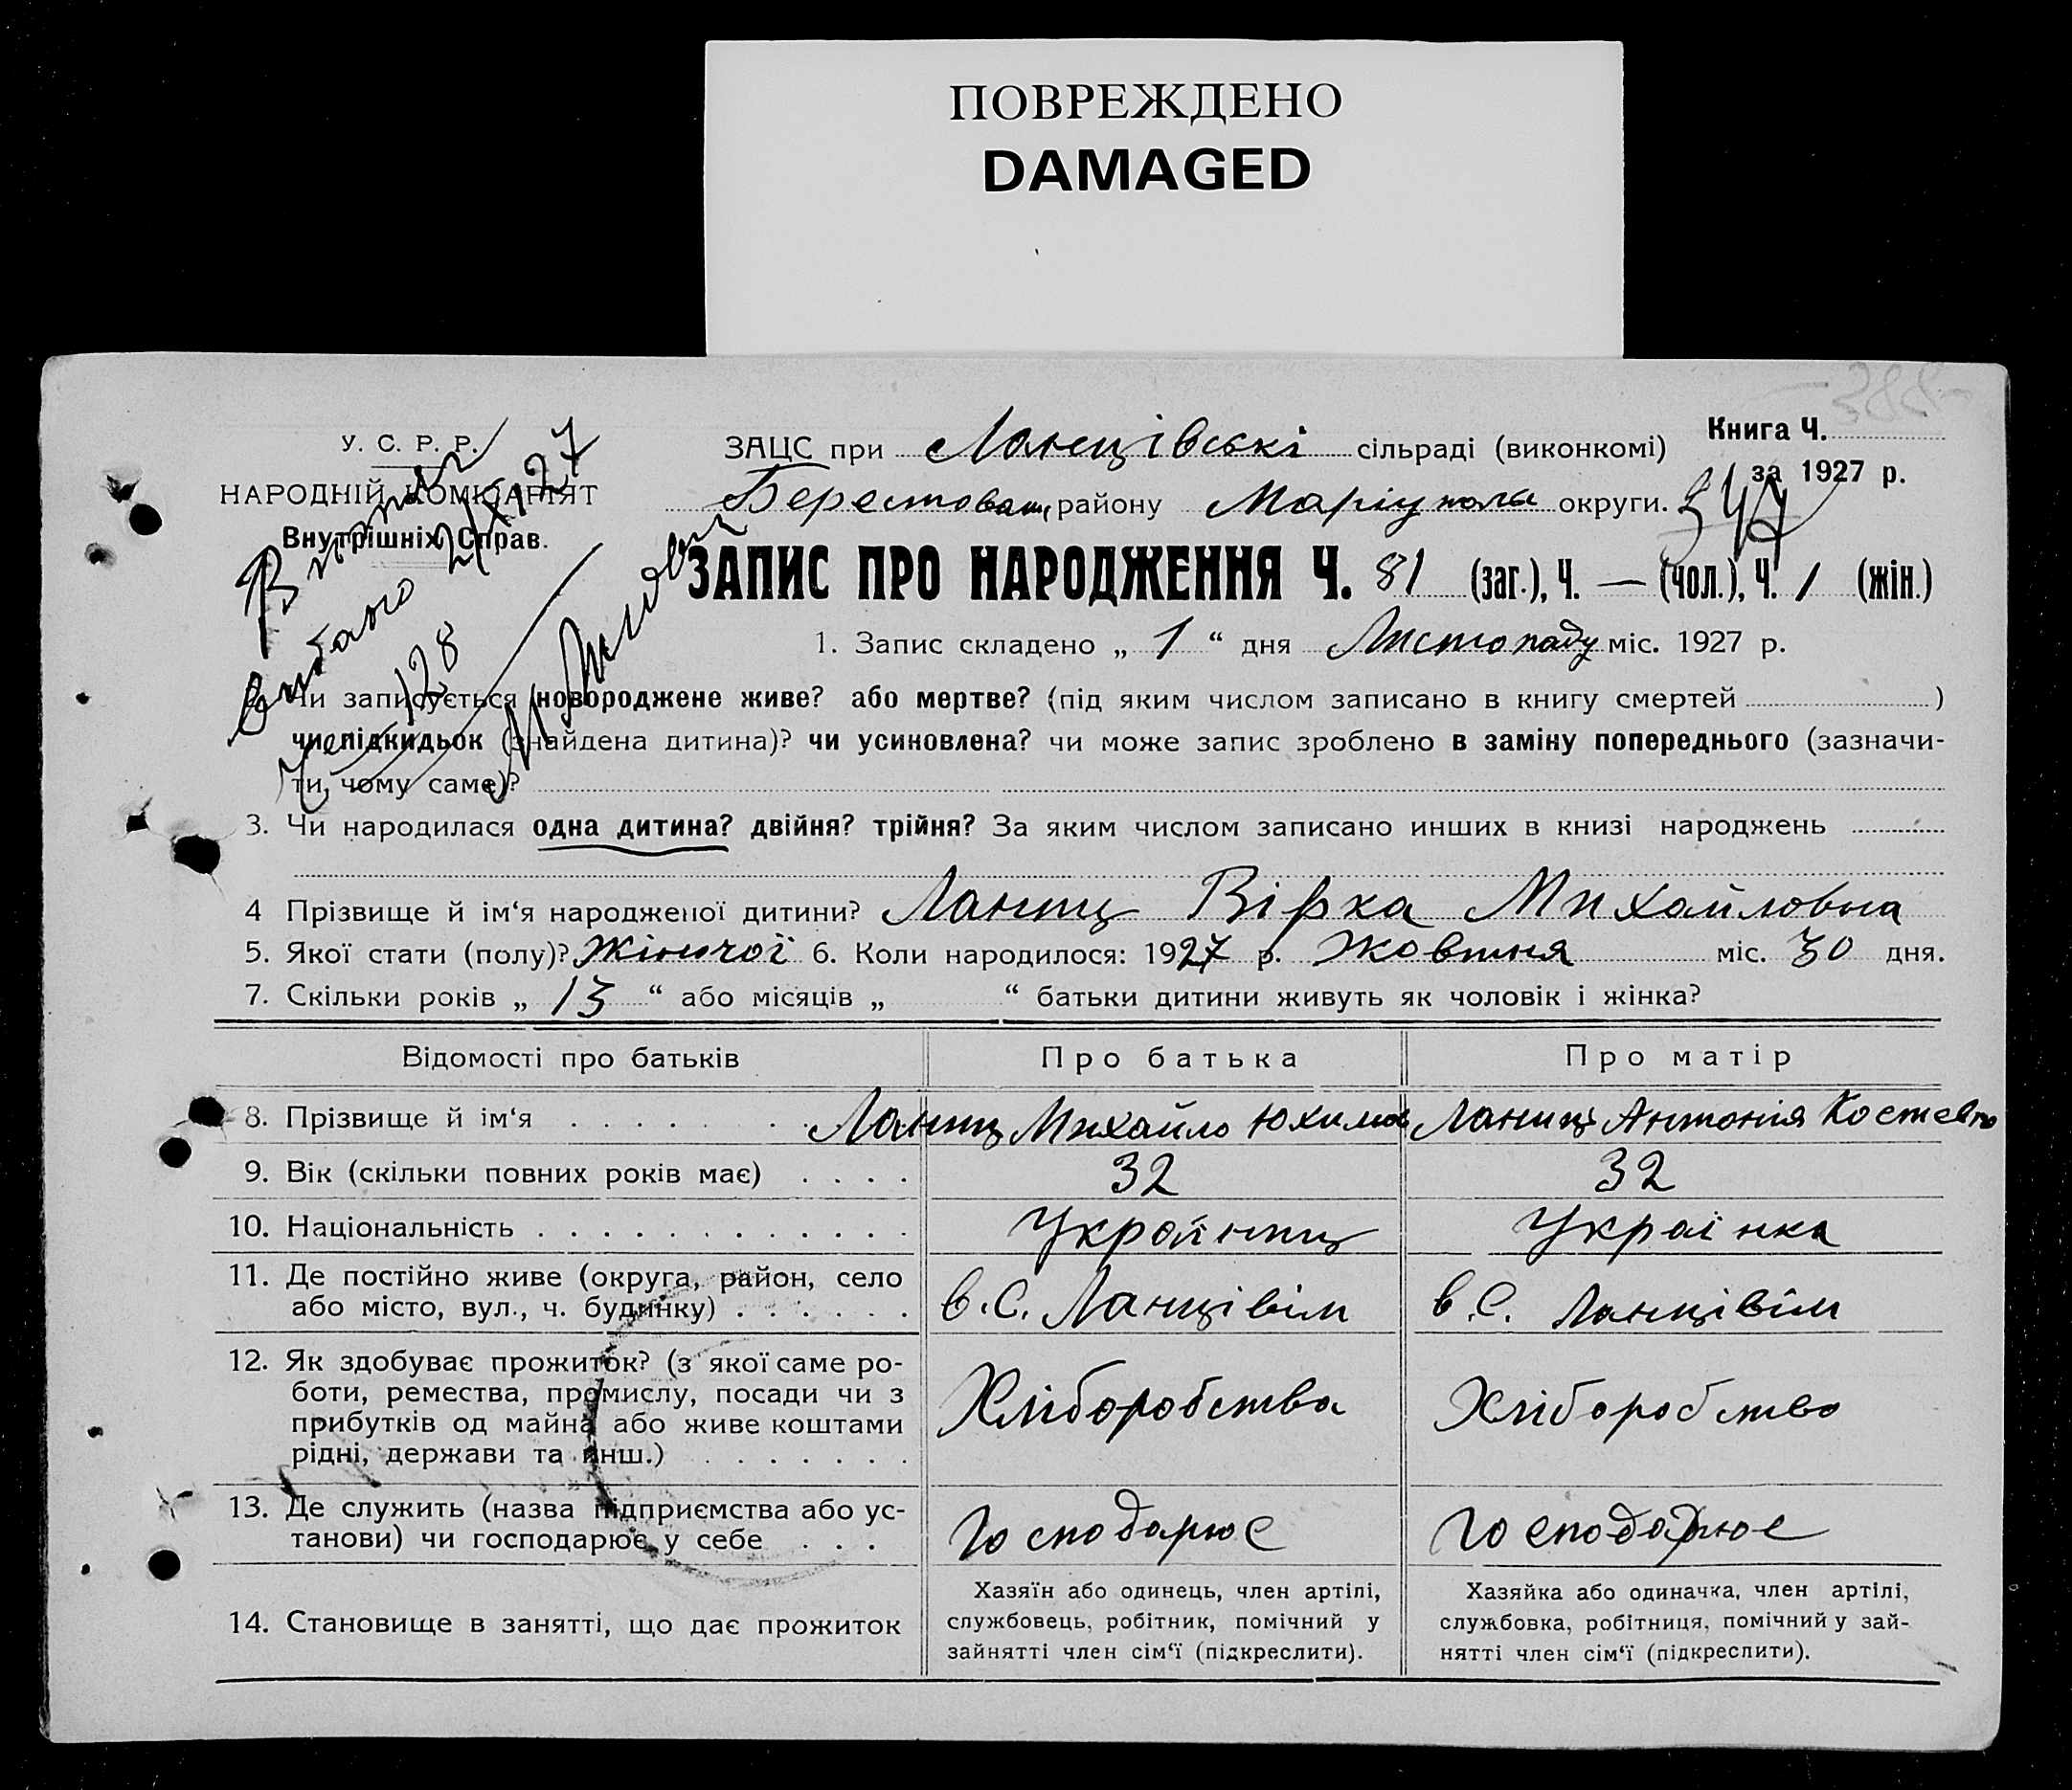 ПОВРЕЖДЕНО
DAMAGED
У. С. Р. Р.
НАРОДНІЙ КОМІСАРІЯТ
Внутрішніх Справ.
ЗАЦС при Ланцівські сільраді (виконкомі)
Книга Ч.
за 1927 р.
району Маріуполь округи.
ЗАПИС ПРО НАРОДЖЕННЯ Ч. 81 (заг.), Ч. — (чол.), Ч. 1 (жін.)
1. Запис складено „ 1 “ дня Листопаду міс. 1927 р.
Чи записується новороджене живе? або мертве? (під яким числом записано в книгу смертей )
чи підкидьок (знайдена дитина)? чи усиновлена? чи може запис зроблено в заміну попереднього (зазначи-
ти, чому саме)?
3. Чи народилася одна дитина? двійня? трійня? За яким числом записано инших в книзі народжень
4 Прізвище й ім‘я народженої дитини? Ланец Вірка Михайловна
5. Якої стати (полу)? Жіночої 6. Коли народилося: 1927 р. Жовтня міс. 30 дня.
7. Скільки років „ 13 “ або місяців „ “ батьки дитини живуть як чоловік і жінка?
Відомості про батьків Про батька Про матір
8. Прізвище й ім‘я Ланец Михайло Юхимов Ланец Антонія
9. Вік (скільки повних років має) 32 32
10. Національність Українец Украінка
11. Де постійно живе (округа, район, село
або місто, вул., ч. будинку) в. С. Ланцівім в С. Ланцівім
12. Як здобуває прожиток? (з якої саме ро-
боти, ремества, промислу, посади чи з
прибутків од майна або живе коштами
рідні, держави та инш.) Хліборобства Хліборобство
13. Де служить (назва підприємства або ус-
танови) чи господарює у себе Господарює Господарює
14. Становище в занятті, що дає прожиток
Хазяїн або одинець, член артілі,
службовець, робітник, помічний у
зайнятті член сім‘ї (підкреслити).
Хазяйка або одиначка, член артілі,
службовка, робітниця, помічний у зай-
нятті член сім‘ї (підкреслити).